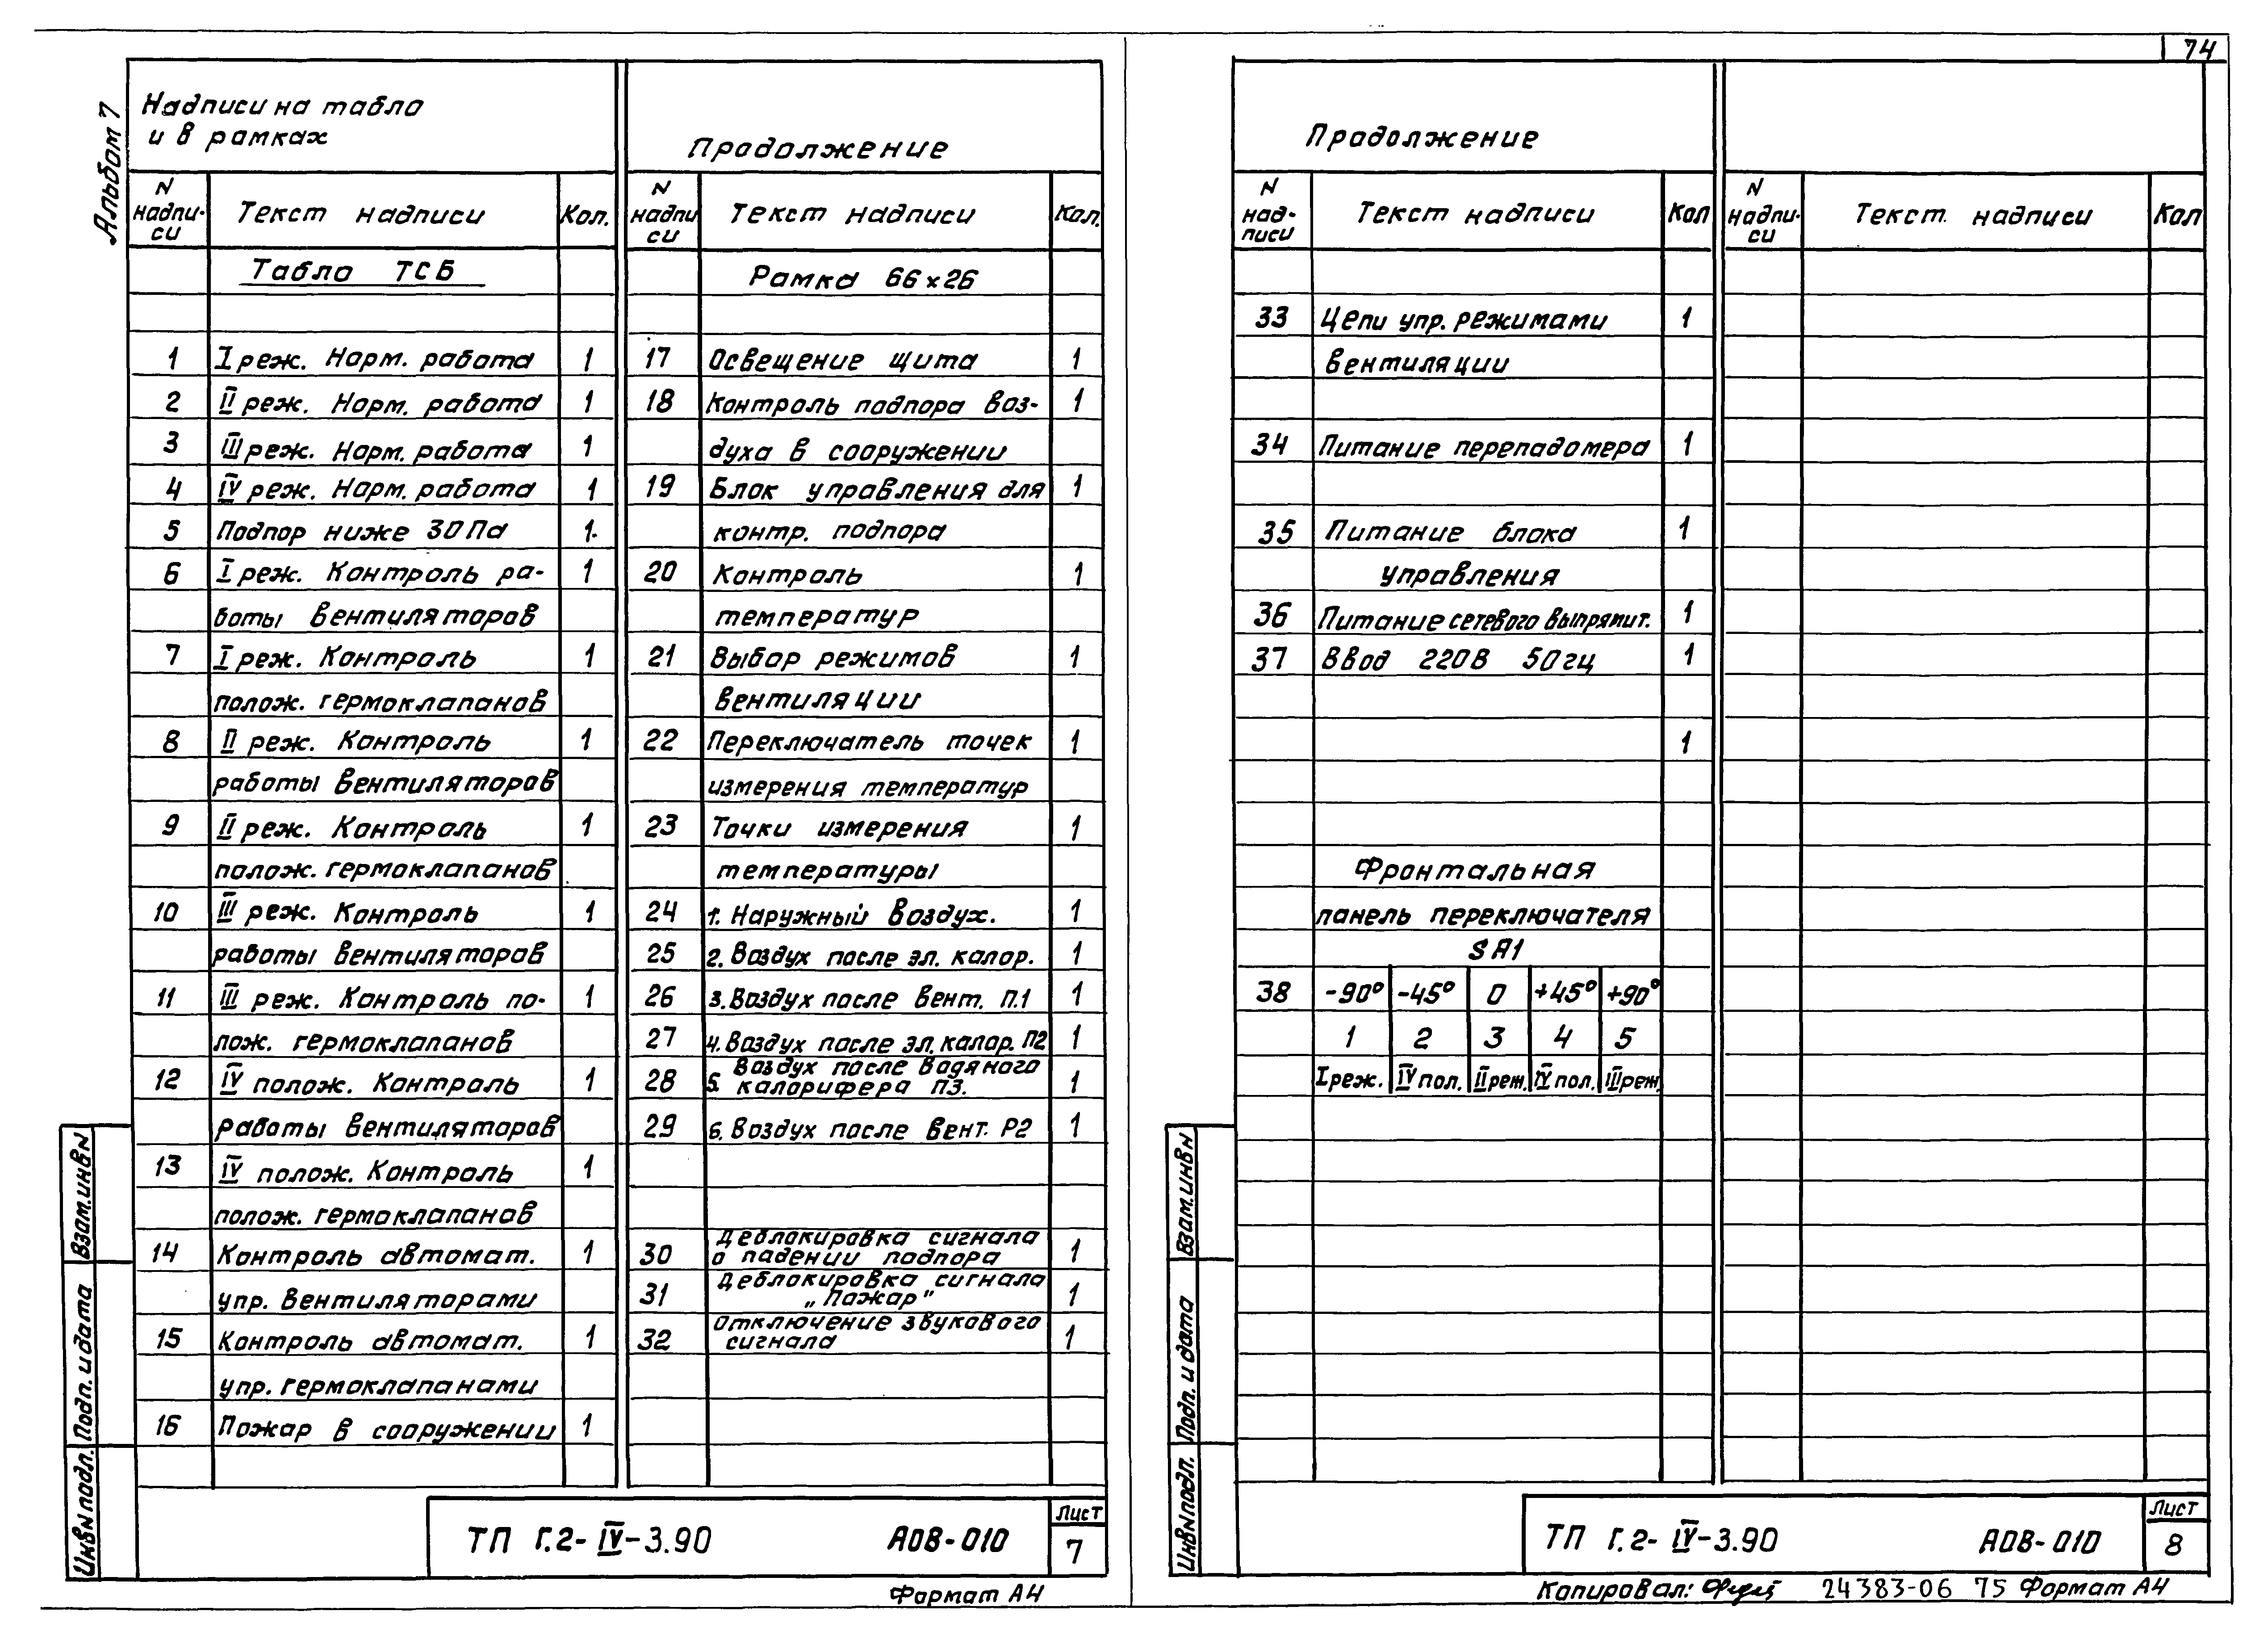 74
Альбом 7
Надписи на табло
и в рамках
N надпи-си Текст надписи Кол.
Табло ТСБ
1 I реж. Норм. работа 1
2 II реж. Норм. работа 1
3 III реж. Норм. работа 1
4 IV реж. Норм. работа 1
5 Подпор ниже 30 Па 1.
6 I реж. Контроль ра- 1
боты вентиляторов
7 I реж. Контроль 1
полож. гермоклапанов
8 II реж. Контроль 1
работы вентиляторов
9 II реж. Контроль 1
полож. гермоклапанов
10 III реж. Контроль 1
работы вентиляторов
11 III реж. Контроль по- 1
лож. гермоклапанов
12 IV полож. Контроль 1
работы вентиляторов
13 IV полож. Контроль 1
полож. гермоклапанов
14 Контроль автомат. 1
упр. вентиляторами
15 Контроль автомат. 1
упр. гермоклапанами
16 Пожар в сооружении 1
Продолжение
N надпи си Текст надписи Кол.
Рамка 66×26
17 Освещение щита 1
18 Контроль подпора воз- 1
духа в сооружении
19 Блок управления для 1
контр. подпора
20 Контроль 1
температур
21 Выбор режимов 1
вентиляции
22 Переключатель точек 1
измерения температур
23 Точки измерения 1
температуры
24 1. Наружный воздух. 1
25 2. Воздух после эл. калор. 1
26 3. Воздух после вент. П.1 1
27 4. Воздух после эл. калор. П2 1
28 5. Воздух после водяного 1
калорифера П3.
29 6. Воздух после вент. Р2 1
30 Деблокировка сигнала 1
о падении подпора
31 Деблокировка сигнала 1
„Пожар"
32 Отключение звукового 1
сигнала
Взам. инв N
Подп. и дата
Инв N подл.
ТП Г.2-IV-3.90 АОВ-010 Лист 7
Формат А4
Продолжение
N над-писи Текст надписи Кол
33 Цепи упр. режимами 1
вентиляции
34 Питание перепадомера 1
35 Питание блока 1
управления
36 Питание сетевого выпрямит. 1
37 Ввод 220В 50гц 1
1
Фронтальная
панель переключателя
SA1
38 -90° -45° 0 +45° +90°
1 2 3 4 5
I реж. IV пол. II реж. IV пол. III реж.
N надпи-си Текст. надписи Кол
Взам. инв N
Подп. и дата
Инв N подл.
ТП Г.2-IV-3.90 АОВ-010 Лист 8
Копировал: 24383-06 75 Формат А4